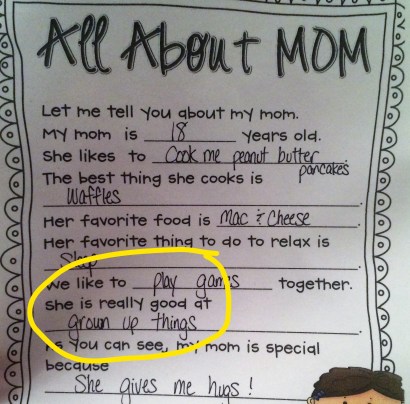 All About MOM
Let me tell you about my mom.
My mom is 18 years old.
She likes to Cook me peanut butter
pancakes.
The best thing she cooks is
Waffles
Her favorite food is Mac & Cheese.
Her favorite thing to do to relax is
Sleep
We like to play games together.
She is really good at
grown up things.
As you can see, my mom is special
because
She gives me hugs!